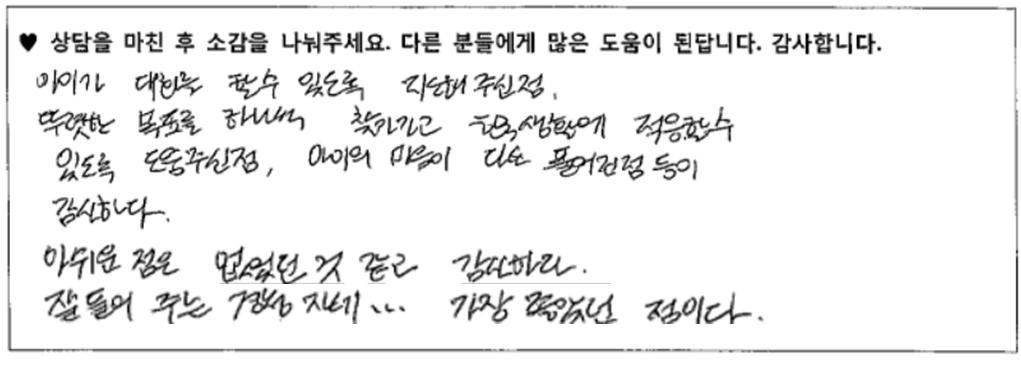 ♥ 상담을 마친 후 소감을 나눠주세요. 다른 분들에게 많은 도움이 된답니다. 감사합니다.
아이가 대화를 할수 있도록 지도해 주신점,
뚜렷한 목표를 하나씩 찾아가고 학교생활에 적응할수
있도록 도움주신점, 아이의 마음이 다소 풀어진점 등이
감사하다.
아쉬운 점은 없었던 것 같고 감사하다.
잘 들어 주는 경청 자세... 가장 좋았던 점이다.